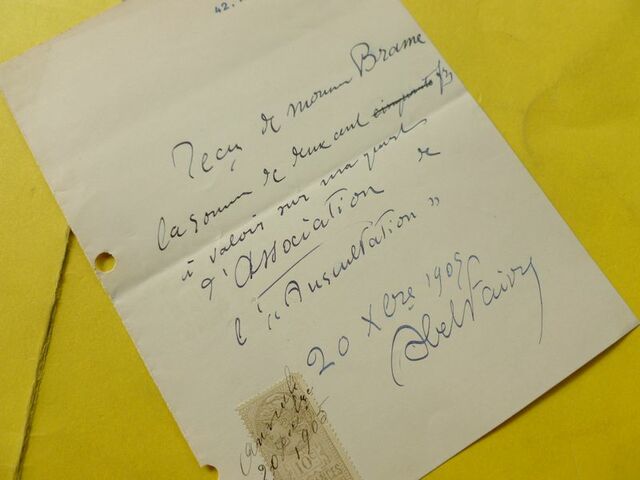 42.
Reçu de monsieur Brame
la somme de deux cent cinquante frs
à valoir sur ma part
d'Association de
l' "Auscultation"
20 Xbre 1905
Abel Faivre
20 Xbre 1905
10